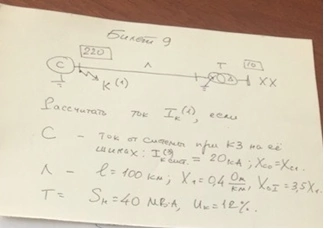 Билет 9
220
Л
Т
10
С
К⁽¹⁾
ХХ
Рассчитать ток Iₖ⁽¹⁾, если
С – ток от системы при КЗ на её
шинах: Iₖ сист. = 20 кА; Xc₀ = Xc₁.
Л – l = 100 км; X₁ = 0,4 Ом/км; X₀ = 3,5X₁.
Т = Sн = 40 МВ·А, Uк = 12%.